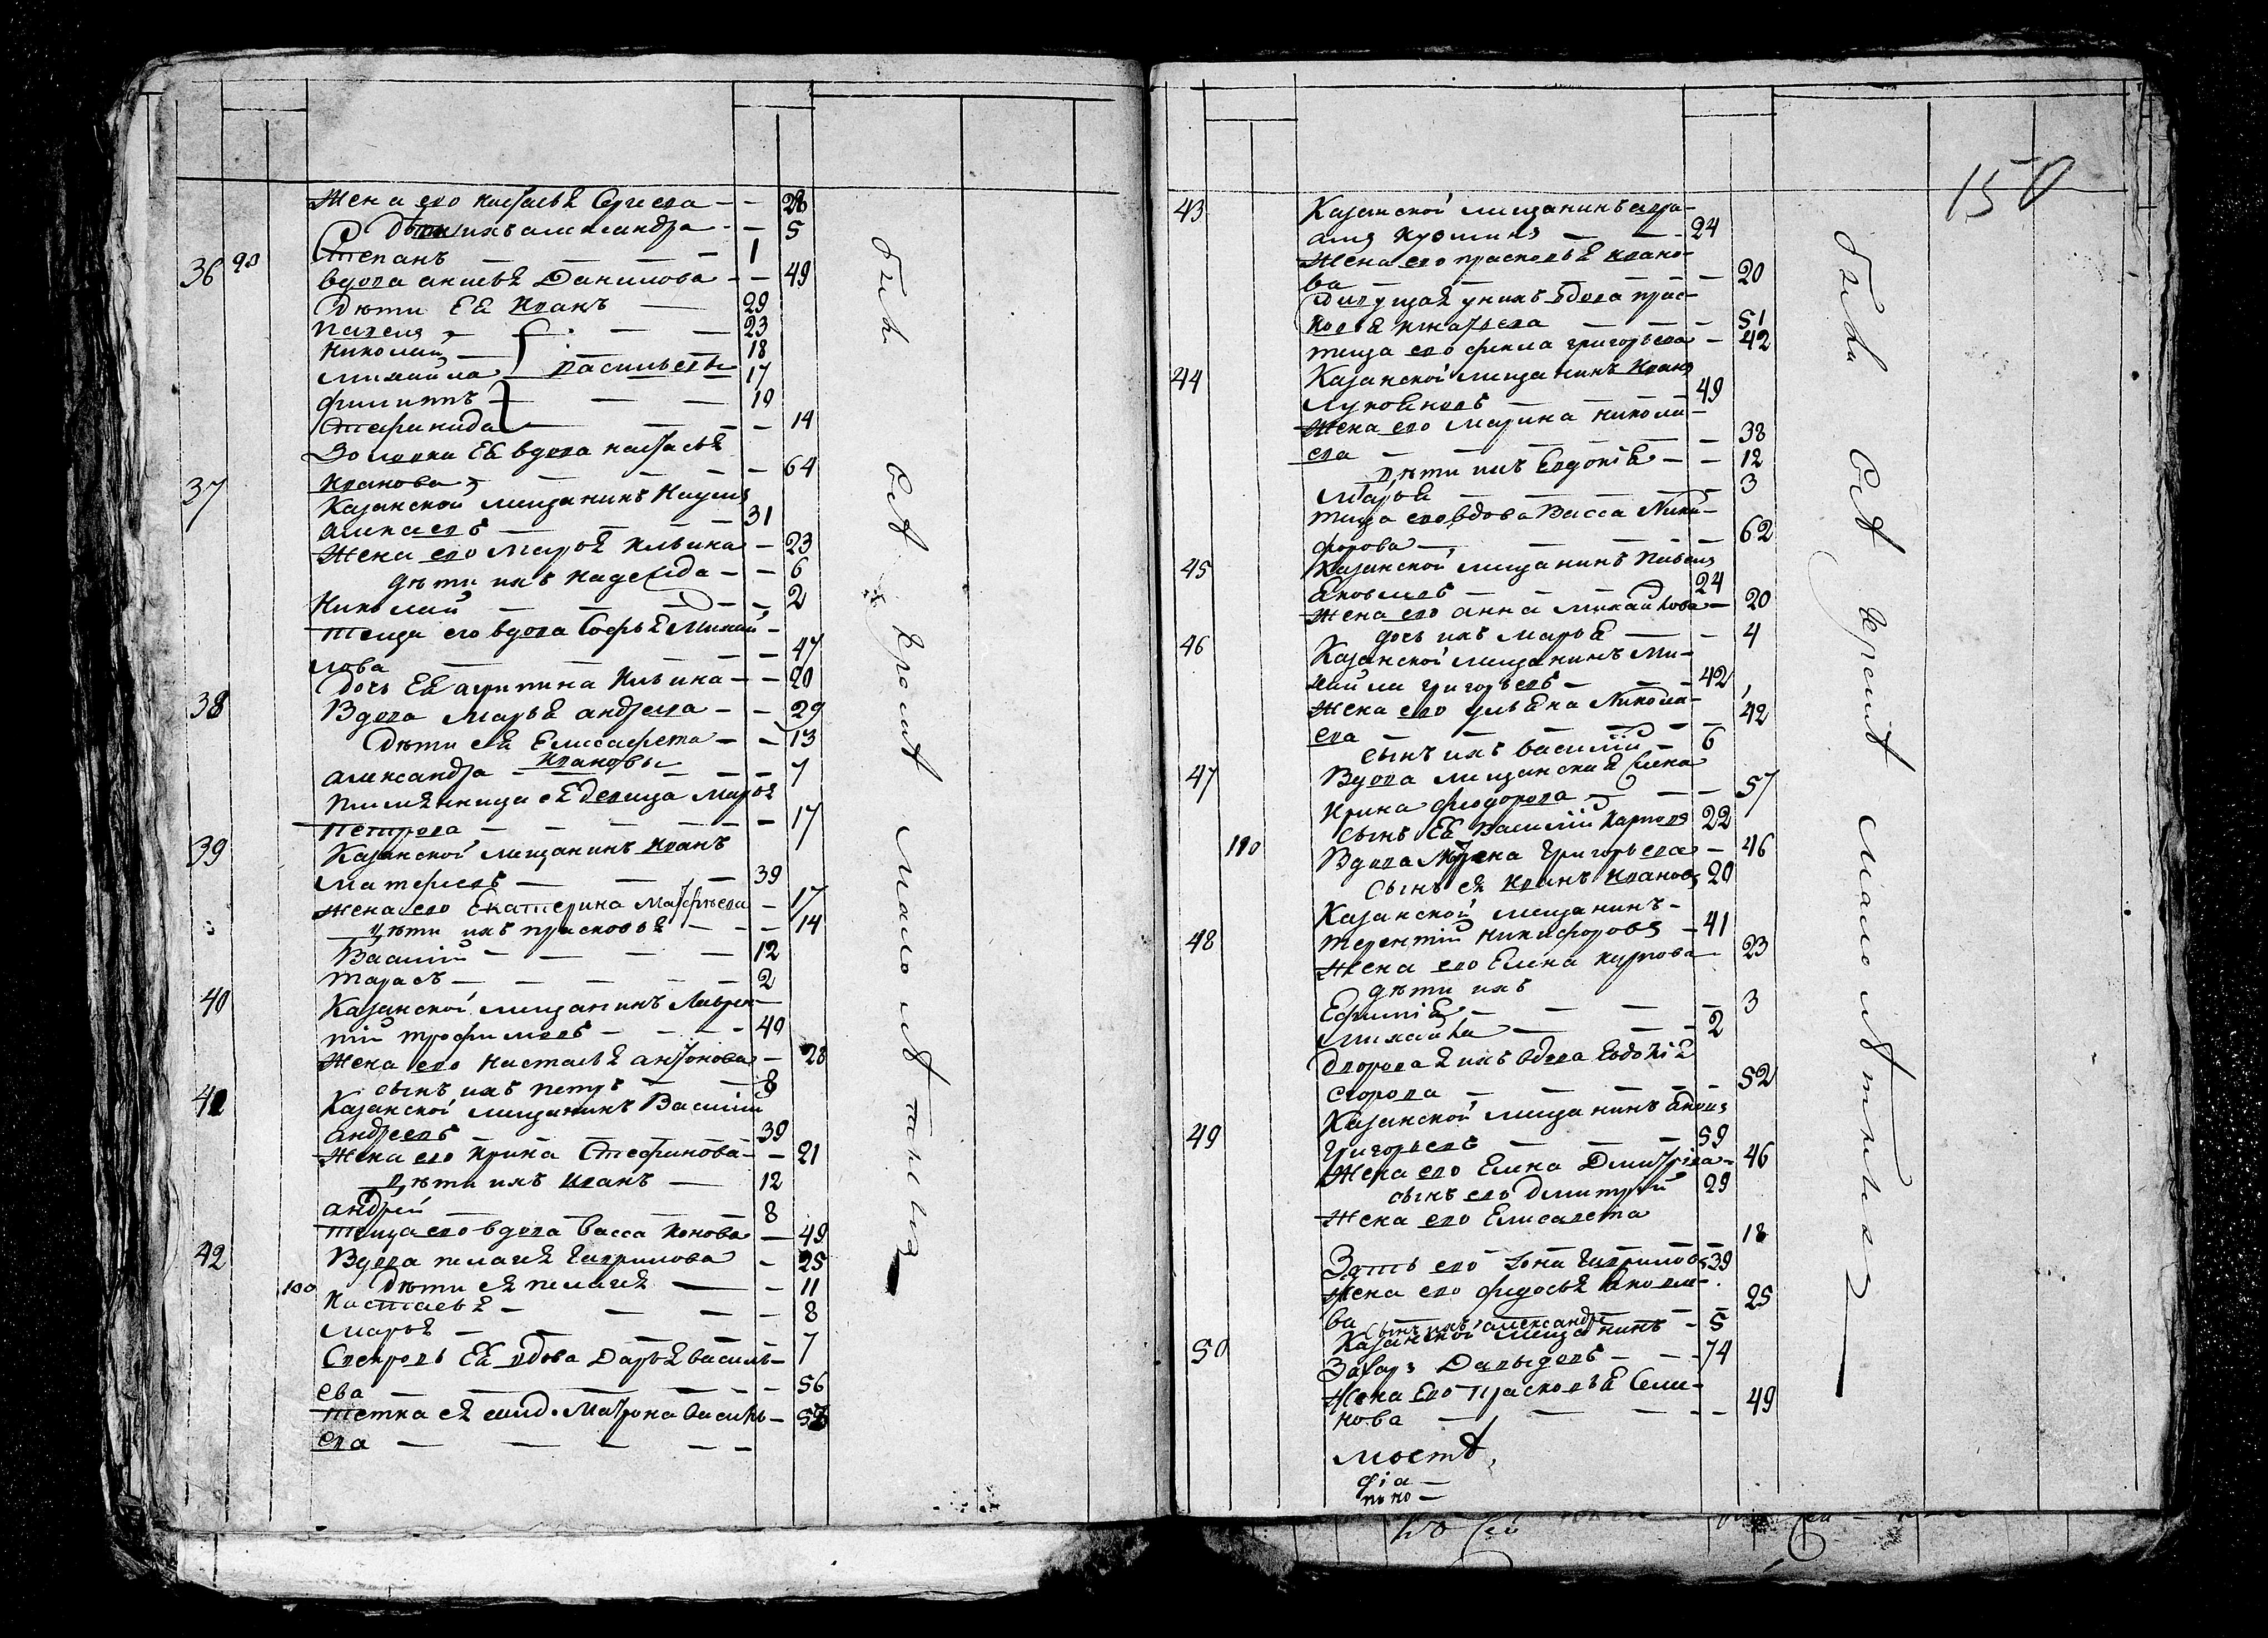 Жена его настасья Сергиева — — 28
Дети ихъ александра — — 5
Степанъ — — — — 1
36 90 вдова анисья Данилова — — 49
Дѣти Ея Иванъ — 29
Павелъ — — 23
Николай — 18
михайла васильевы 17
филиппъ — — — 10
Стефанида — — — 14
Золовка Ея вдова настасья
Иванова — — — 64
37 Казанской мещанинъ Наумъ
алексеевъ — — — 31
Жена его Марья Ильина — 23
дѣти ихъ надежда — — 6
Николай — — — — 2
теща его вдова Софья Михай-
лова — — — — 47
дочь Ея агрипина Ильина — — 20
38 Вдова Марья андреева — — 29
Дѣти ея Елисавета — — 13
Ивановы
александра — — — — 7
племянница ея девица Марья
петрова — — — — 17
39 Казанской мещанинъ Иванъ
матфеевъ — — — 39
жена его Екатерина Матфѣева — 17
дѣти ихъ прасковья — — 14
Василій — — — 12
тарасъ — — — — 2
40 Казанской мещанинъ Лаврен-
тій трофимовъ — — — 40
Жена его настасья антонова — 28
сынъ ихъ петръ — — 8
41 Казанской мещанинъ Василій
андреевъ 39
Жена его Ирина Стефанова — — 21
дѣти ихъ Иванъ — 12
андрей — — — 8
теща его вдова васса Ионова — 49
42 Вдова пелагея Гаврилова — 25
100 Дѣти ея пелагея — — 11
Настасья — — — — 8
Марья — — — — 7
Свекровь Ея вдова Дарья василь-
ева — — — — — 56
тетка ея Матрона василь-
ева — — — — —
были всѣ время мало лѣтныя
150
43 Казанской мещанинъ
Кузминъ — — 24
Жена его прасковья Ивано-
ва — — — 20
живущая у нихъ вдова прас-
ковья Игнатьева — — — 51
теща его фекла григорьева — 42
44 Казанской мещанинъ Иванъ
Лукояновъ — — 49
Жена его Марина никола-
ева — — — — 38
дѣти ихъ Евдокія — — 12
Марья — — — 3
теща его вдова Васса Ники-
форова — — — — 62
45 Казанской мещанинъ Павелъ
Яковлевъ — — 24
Жена его анна михайлова — 20
дочь ихъ марья — — 4
46 Казанской мещанинъ Ми-
хайла григорьевъ — — 42
Жена его ульяна Никола-
ева — — — — 42
сынъ ихъ василій — 6
47 Вдова мещанская жена
Ирина феодорова — — — 57
сынъ Ея Василій Карповъ 22
110 Вдова Матрена Григорьева — 46
Сынъ ея Иванъ Ивановъ 20
Казанской мещанинъ —
48 терентій никифоровъ — 41
Жена его Елена Карпова — 23
дѣти ихъ
Ефимія — — — 3
михайла — — — 2
дворовая ихъ вдова Евдокія
Егорова — — — — 52
Казанской мещанинъ
49 Григорьевъ — — — 59
Жена его Елена Дмитріева — 46
сынъ его дмитрій 29
Жена его Елисавета
— 18
Зять его Гавриловъ 39
Жена его федосья Яковле-
ва — 25
сынъ ихъ александръ — 5
50 Казанской мещанинъ
Захаръ Давыдовъ — — 74
Жена Его прасковья Семе-
нова — — — — 49
были всѣ время мало лѣтныя